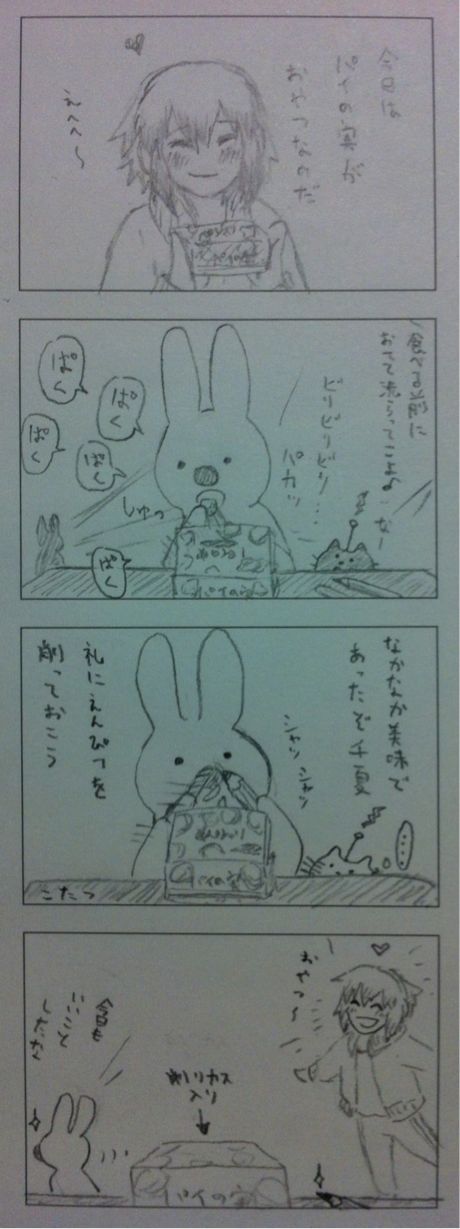 今日は
パイの実が
おやつなのだ
えへへ〜
パイの実
食べる前に
おてて洗ってこよ♪なー
ビリビリビリ…
パカッ
ぱく
ぱく
ぱく
ぱく
しゅっ
ぱく
パイの実
なかなか美味で
あったぞ千夏
シャッ シャッ
礼にえんぴつを
削っておこう
パイの実
こたつ
おやつ〜
削りカス
入り
今日も
いいこと
したな
パイの実